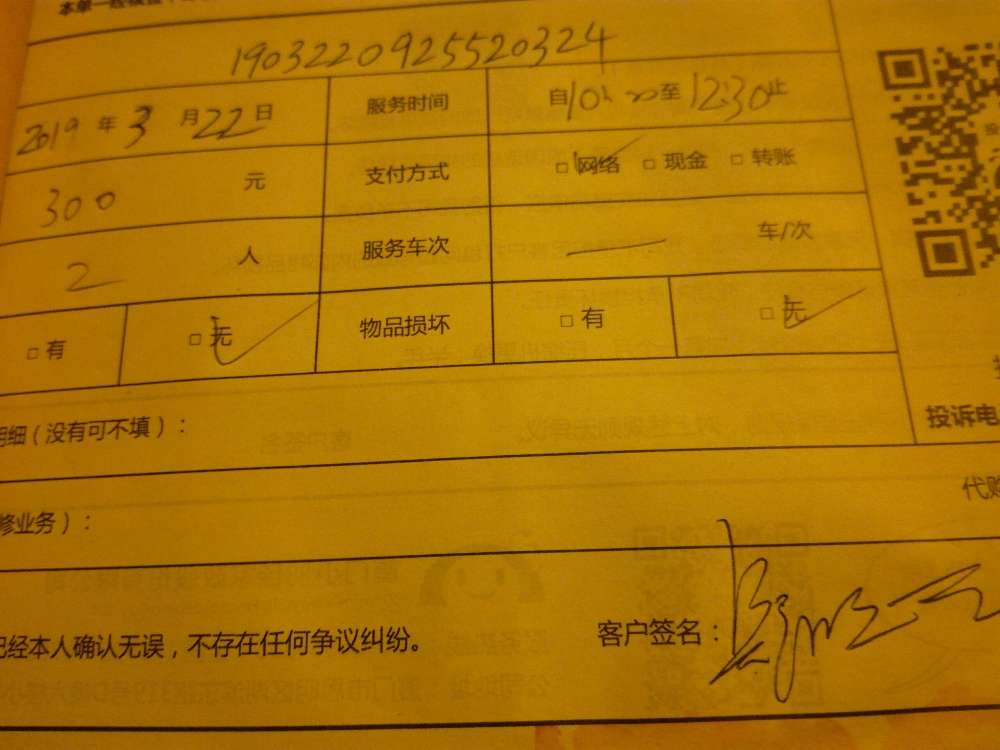 本单一经
1903220925520324
2019 年 3 月 22 日 服务时间 自10:00至12:30止
300 元 支付方式 □ 网络 □ 现金 □ 转账
2 人 服务车次 车/次
□ 有 □ 无 物品损坏 □ 有 □ 无
投诉电
明细（没有可不填）：
代购
修业务）：
已经本人确认无误，不存在任何争议纠纷。 客户签名：